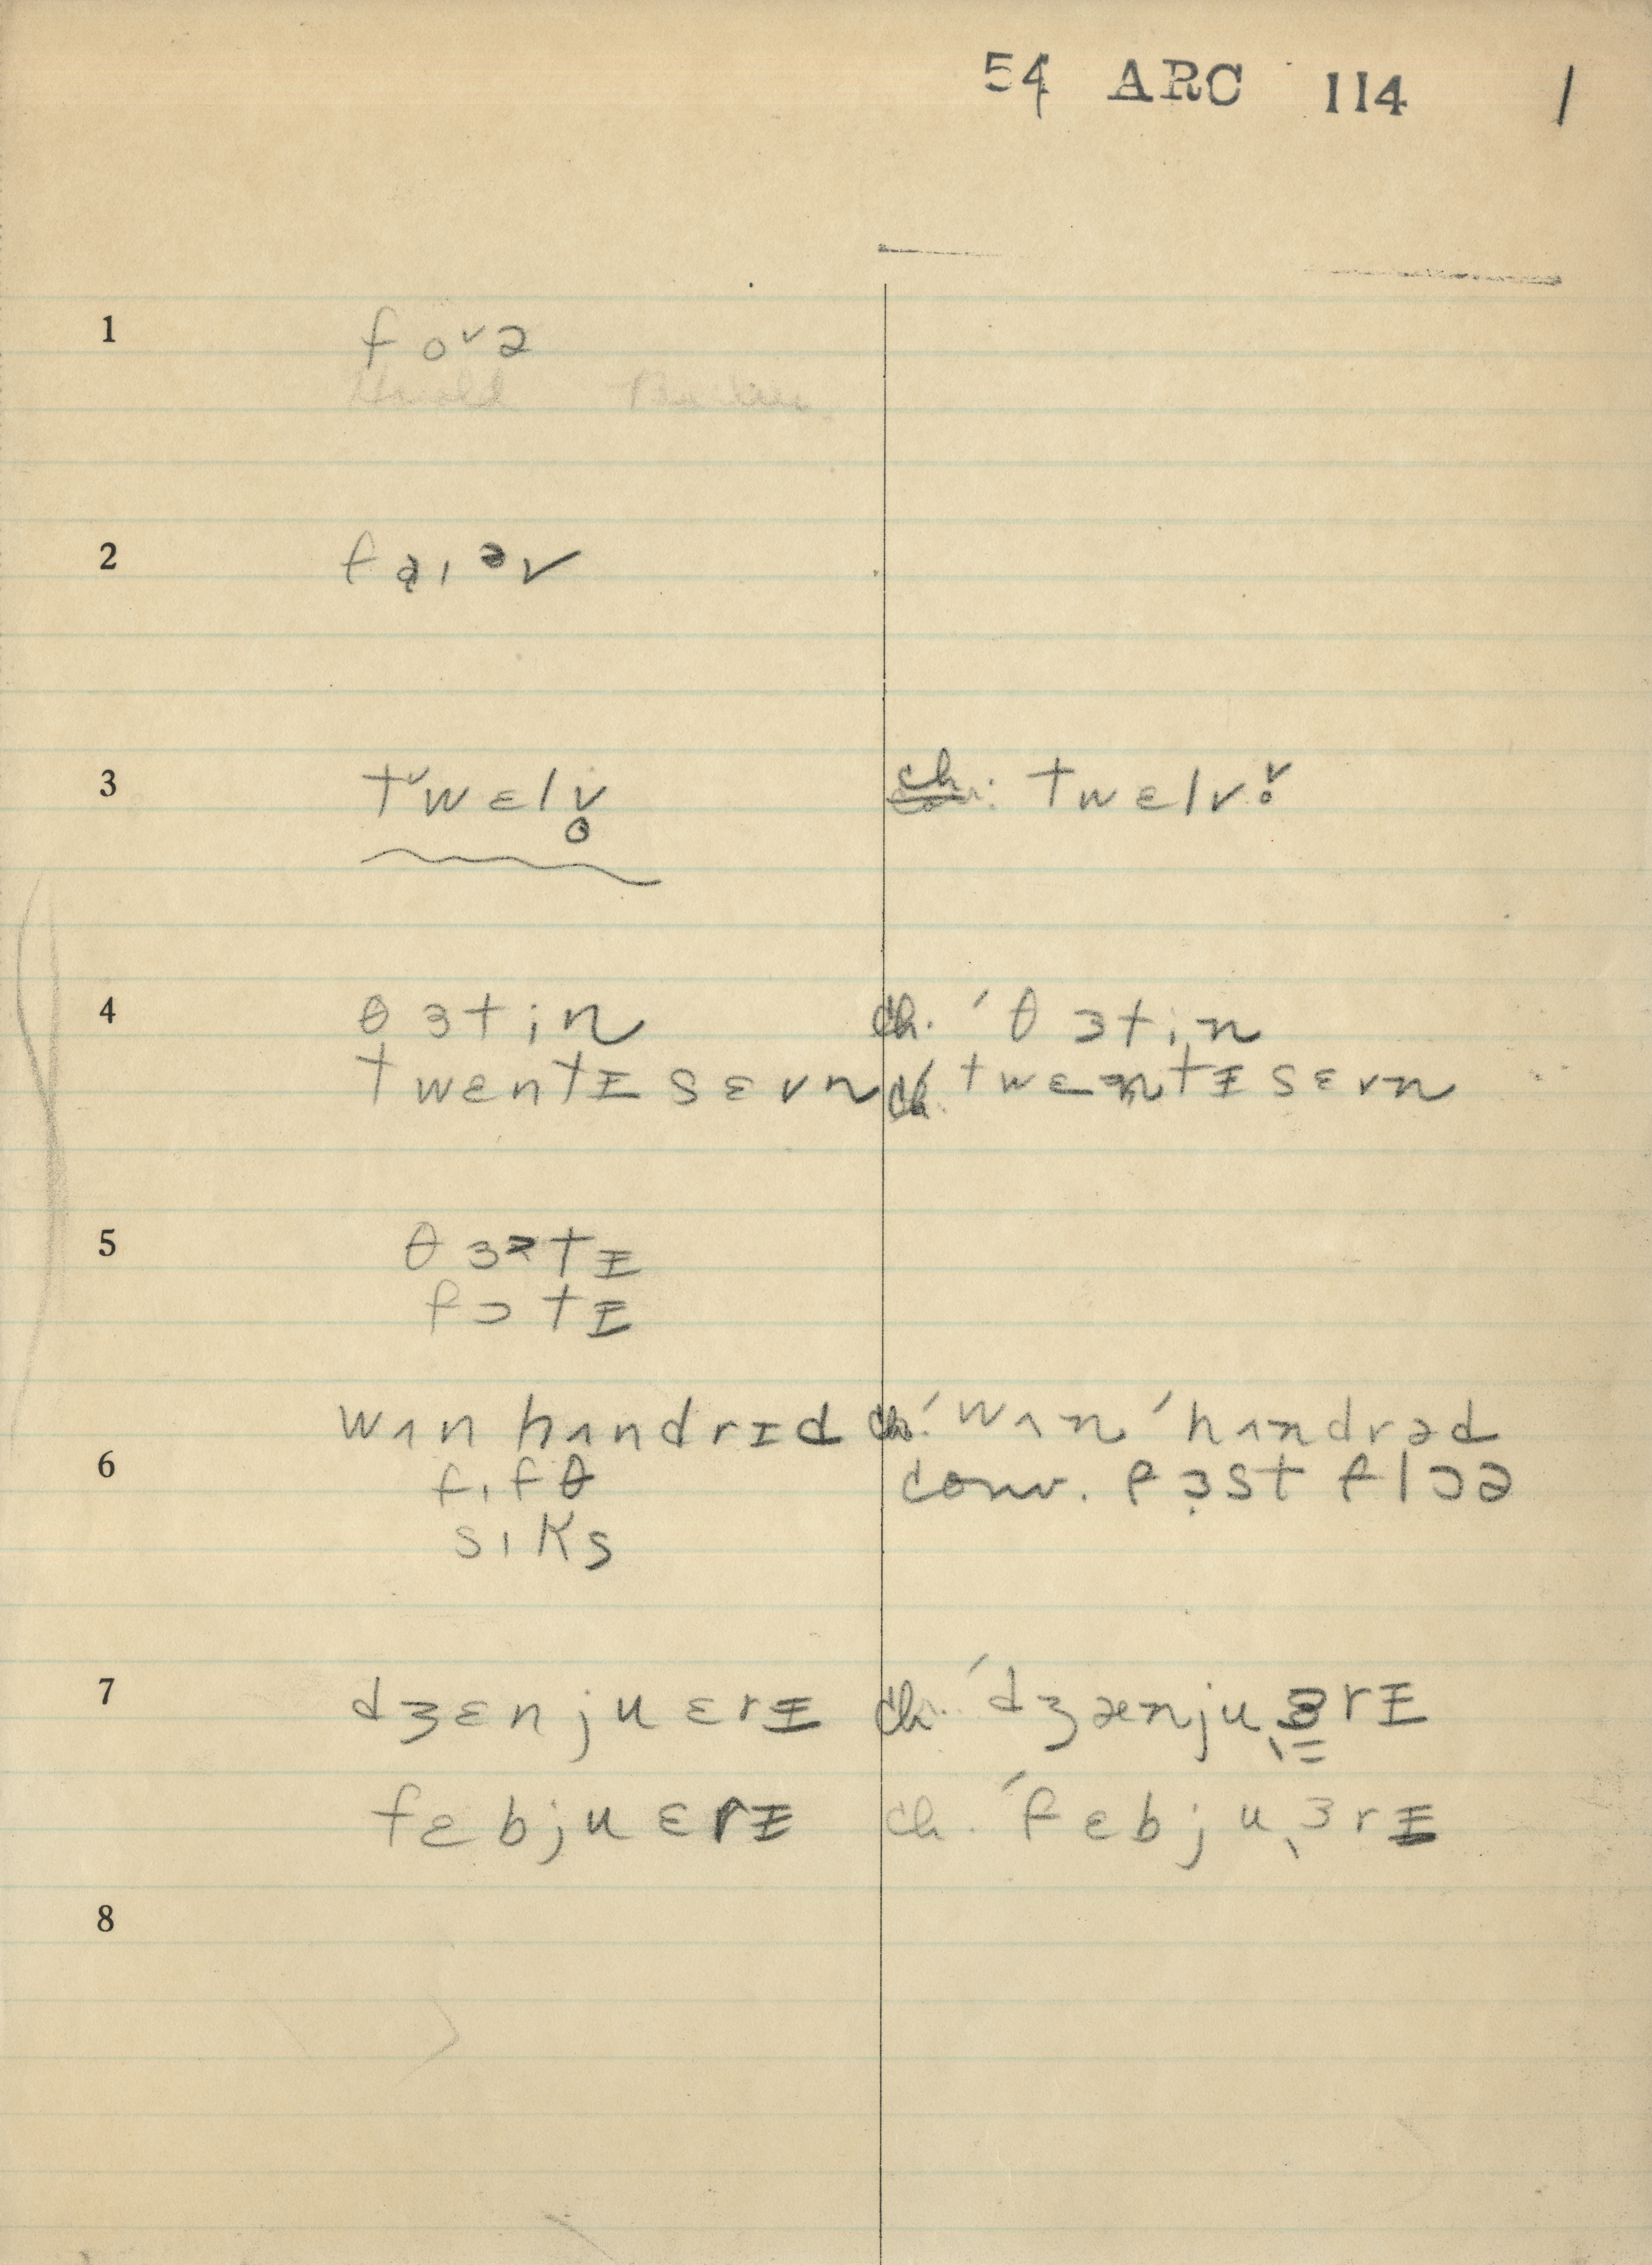 54 ARC 114 1
1 fo˅ə
Harold
2 fa̧ɪᵊv
3 t˅wɛlv̥ ch: twɛlv˅̥
4 θɜtin ch. ˈθɜtin
twɛntɪ sɛvn ch. ˈtwɛntɪ sɛvn
5 θɜᵊtɪ
fɔtɪ
wʌn hʌndrɪd ch. ˈwʌn ˈhʌndrəd
6 fɪfθ conv. fɜst flɔə
sɪks
7 dʒɛnjuɛrɪ ch. ˈdʒænjuˌɜrɪ
fɛbjuɛrɪ ch. ˈfɛbjuˌɜrɪ
8